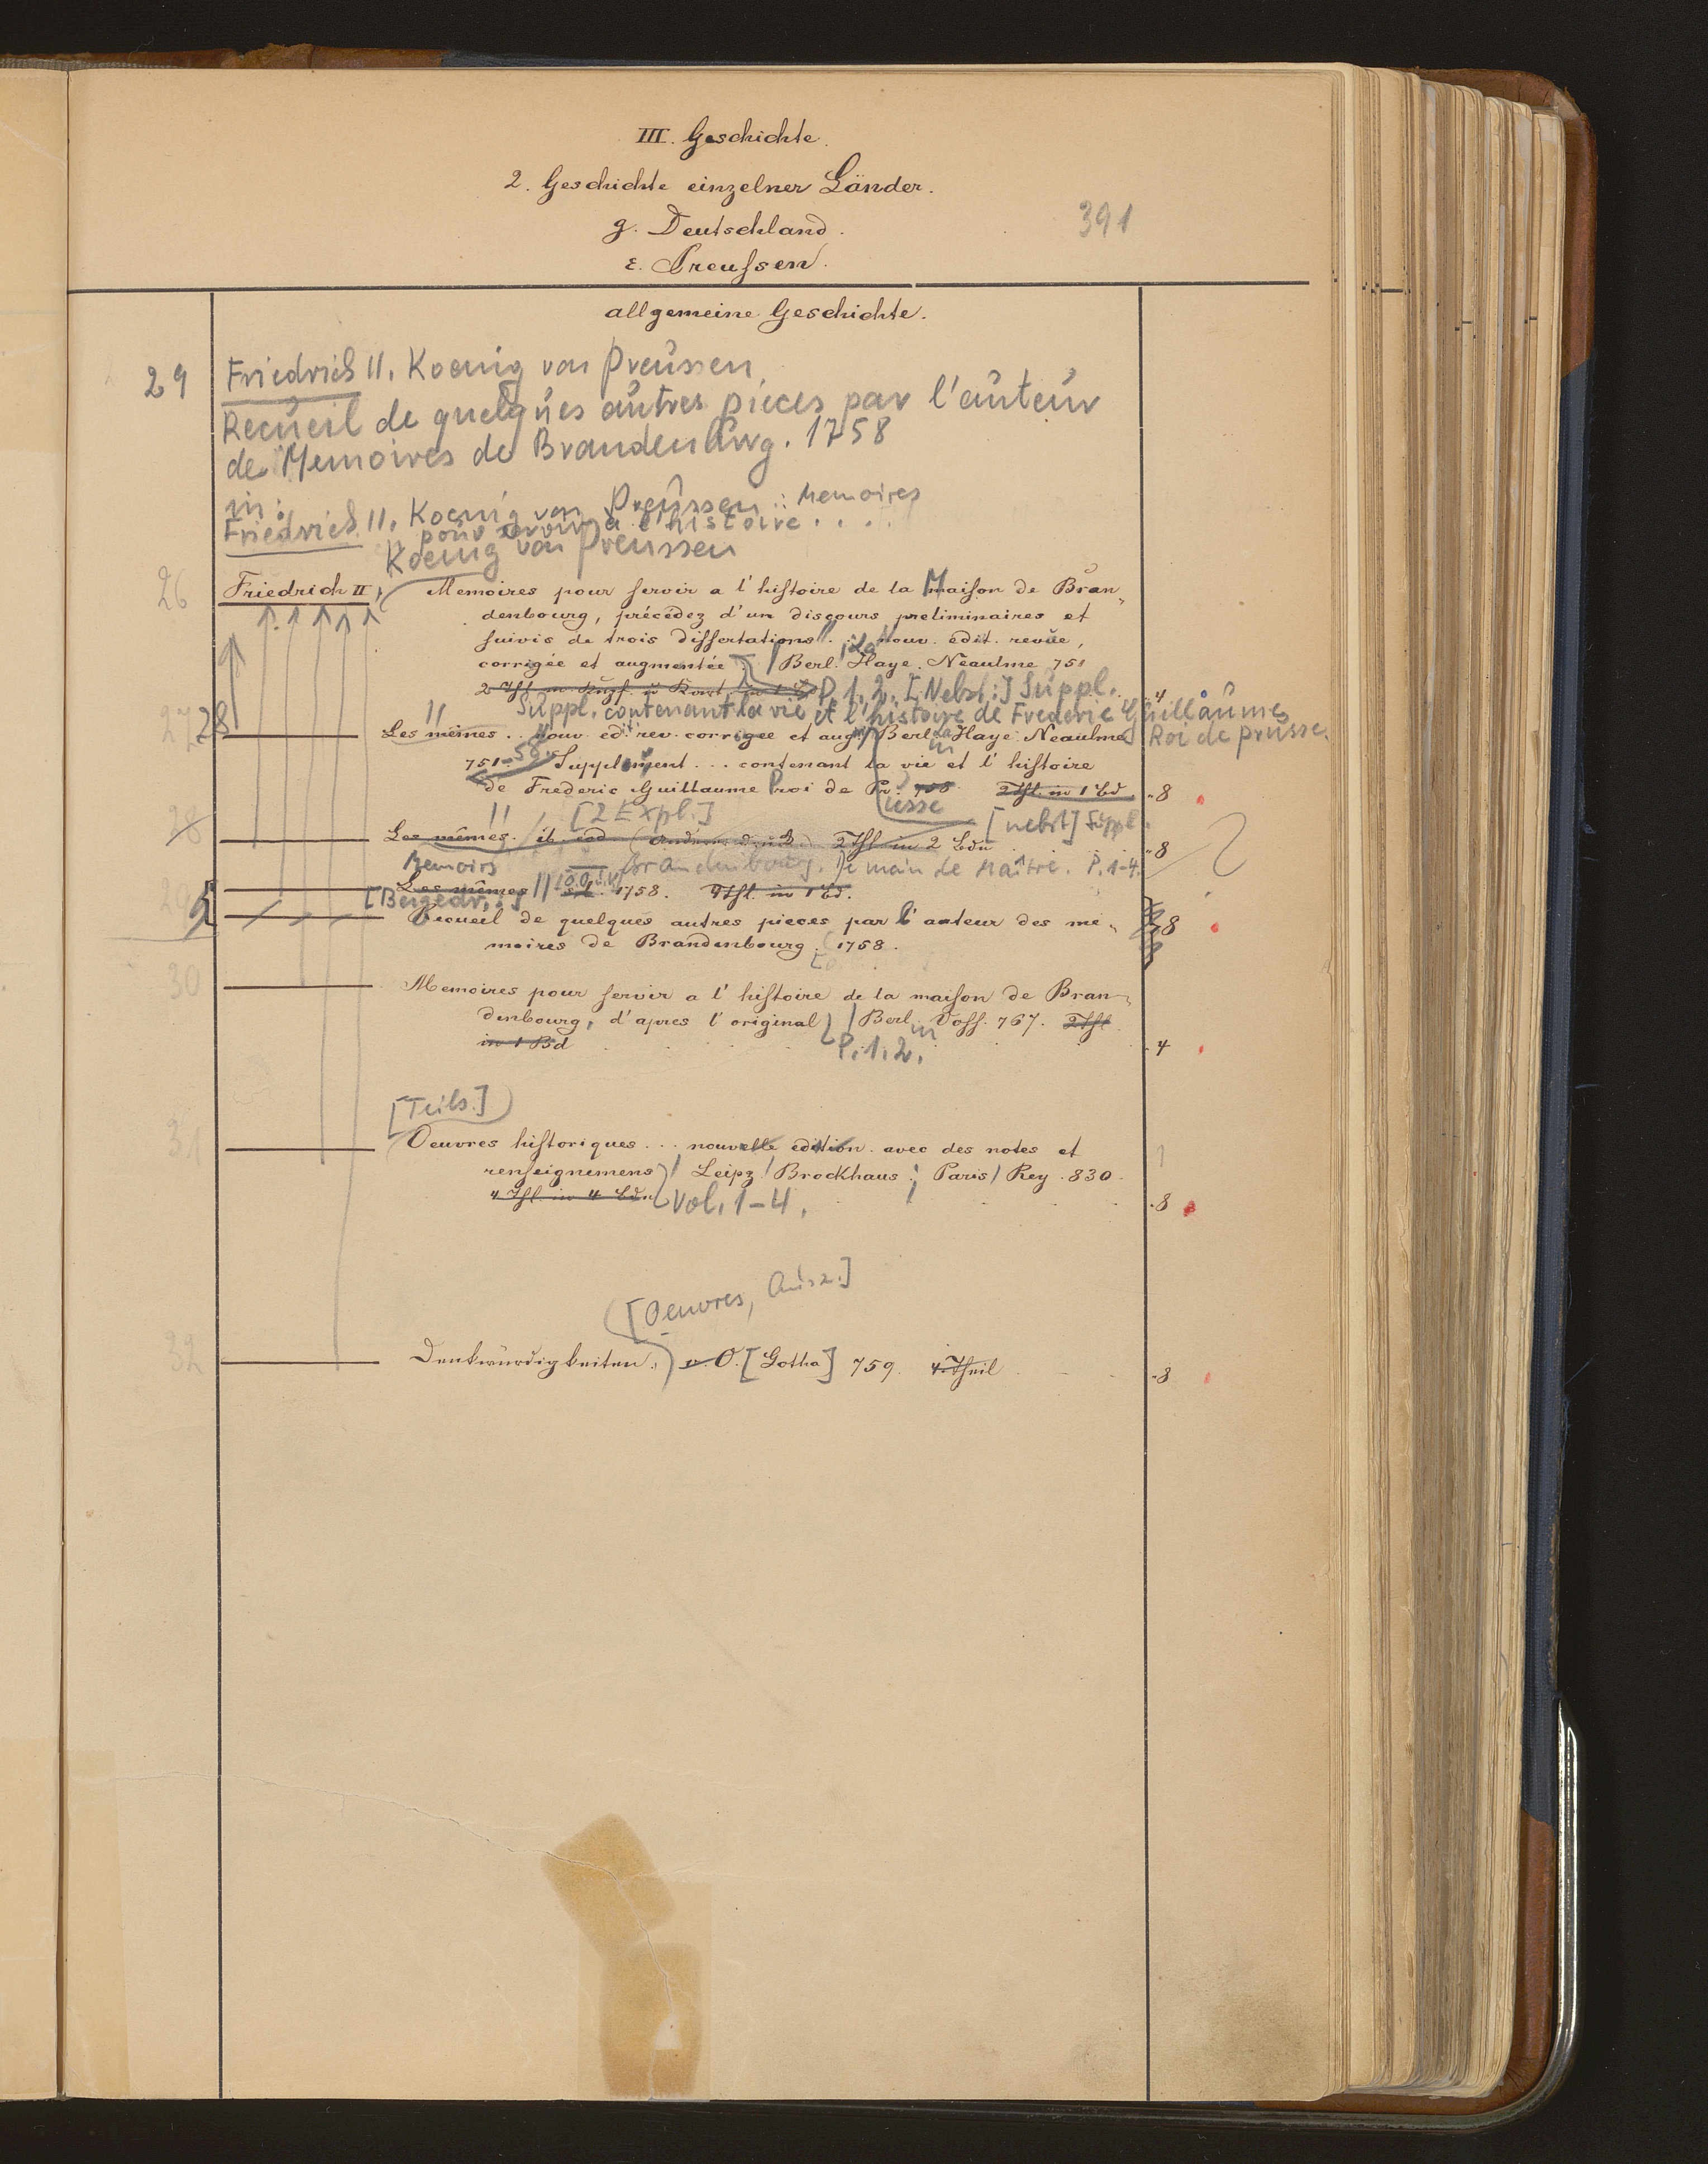 III. Geschichte.
2. Geschichte einzelner Länder.
g. Deutschland.
391
ε. Preussen.
allgemeine Geschichte.
29 Friedrich II. Koenig von Preussen
Recueil de quelques autres pièces par l'auteur
de Memoires de Brandenburg. 1758
in:
Friedrich II. Koenig von Preussen: Memoires
pour servir à l'histoire....
Koenig von Preussen
26 Friedrich II, Memoires pour servir a l'histoire de la Maison de Bran-
denbourg, précédez d'un discours preliminaires et
suivis de trois dissertations. nouv. edit. revue,
corrigée et augmentée. Berl. la Haye. Neaulme 751
2 Thl. m. Kupf. u Kart. in 1 Bd P. 1. 2. [Nebst:] Suppl. 4
Suppl. contenant la vie et l'histoire de Frederic Guillaume
27 28 Les mêmes.. nouv. ed. rev. corrigee et aug. Berl. la Haye. Neaulme Roi de Prusse.
751-58. Supplement... contenant la vie et l'histoire
de Frederic Guillaume Proi de Pr. 758 2 Thl. in 1 Bd. "8
usse
[2 Expl.] [nebst] Suppl.
28 Les mêmes. ib. eod. 2 Thl. in 2 Bdn "8
Memoirs Brandenbourg. De main de Maître. P. 1-4.
29 Les mêmes 1758. 4 Thl. in 1 Bd.
[Beigedr.:]
Recueil de quelques autres pieces par l'auteur des me- 8
moires de Brandenbourg. 1758.
30 Memoires pour servir a l'histoire de la maison de Bran-
denbourg, d'apres l'original Berl. Voss. 767. 2 Thl
in 1 Bd P. 1. 2. 4
[Teils.]
31 Oeuvres historiques... nouvelle edition avec des notes et
renseignemens Leipz Brockhaus; Paris Rey. 830.
4 Thl. in 4 Bdn Vol. 1-4. 8
[Oeuvres, Ausz.]
32 Denkwürdigkeiten. o. O. [Gotha] 759. 4. Theil "8